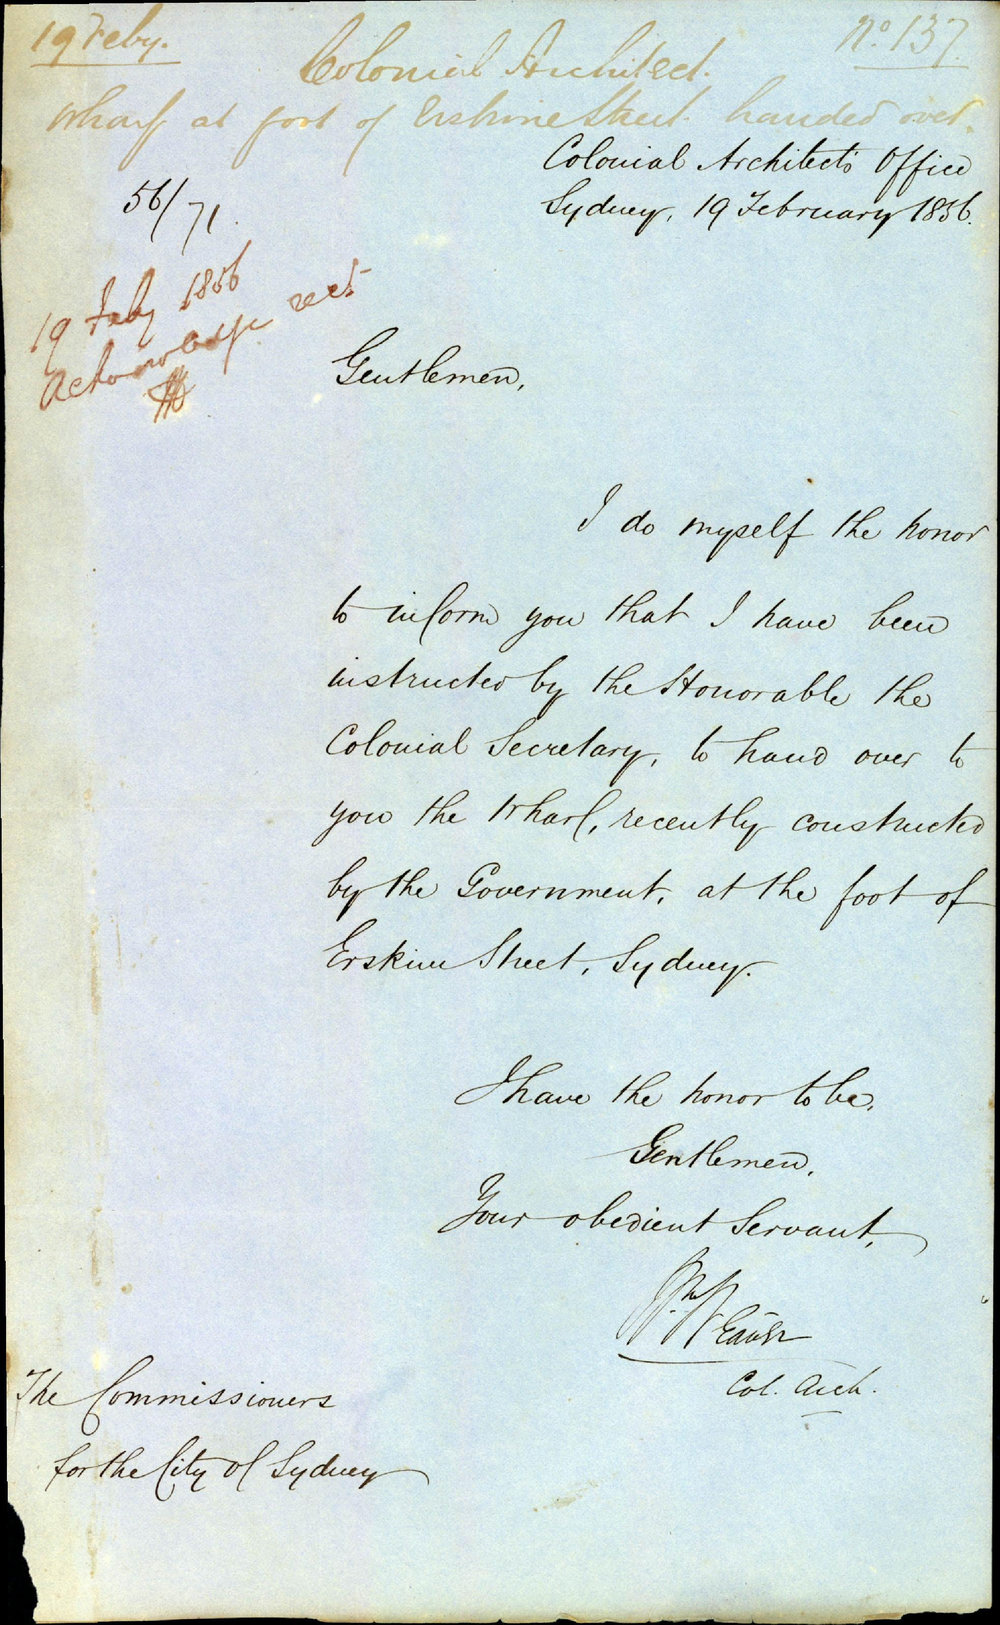 19 Feby.
No. 137
Colonial Architect.
Wharf at foot of Erskine Street handed over.
Colonial Architect's Office
Sydney, 19 February 1856.
56/71.
19 Feby 1856
Acknowledge rect
Gentlemen,
I do myself the honor
to inform you that I have been
instructed by the Honorable the
Colonial Secretary, to hand over to
you the Wharf, recently constructed
by the Government, at the foot of
Erskine Street, Sydney.
I have the honor to be,
Gentlemen,
Your obedient Servant,
Wm Weaver
Col. Arch.
The Commissioners
for the City of Sydney